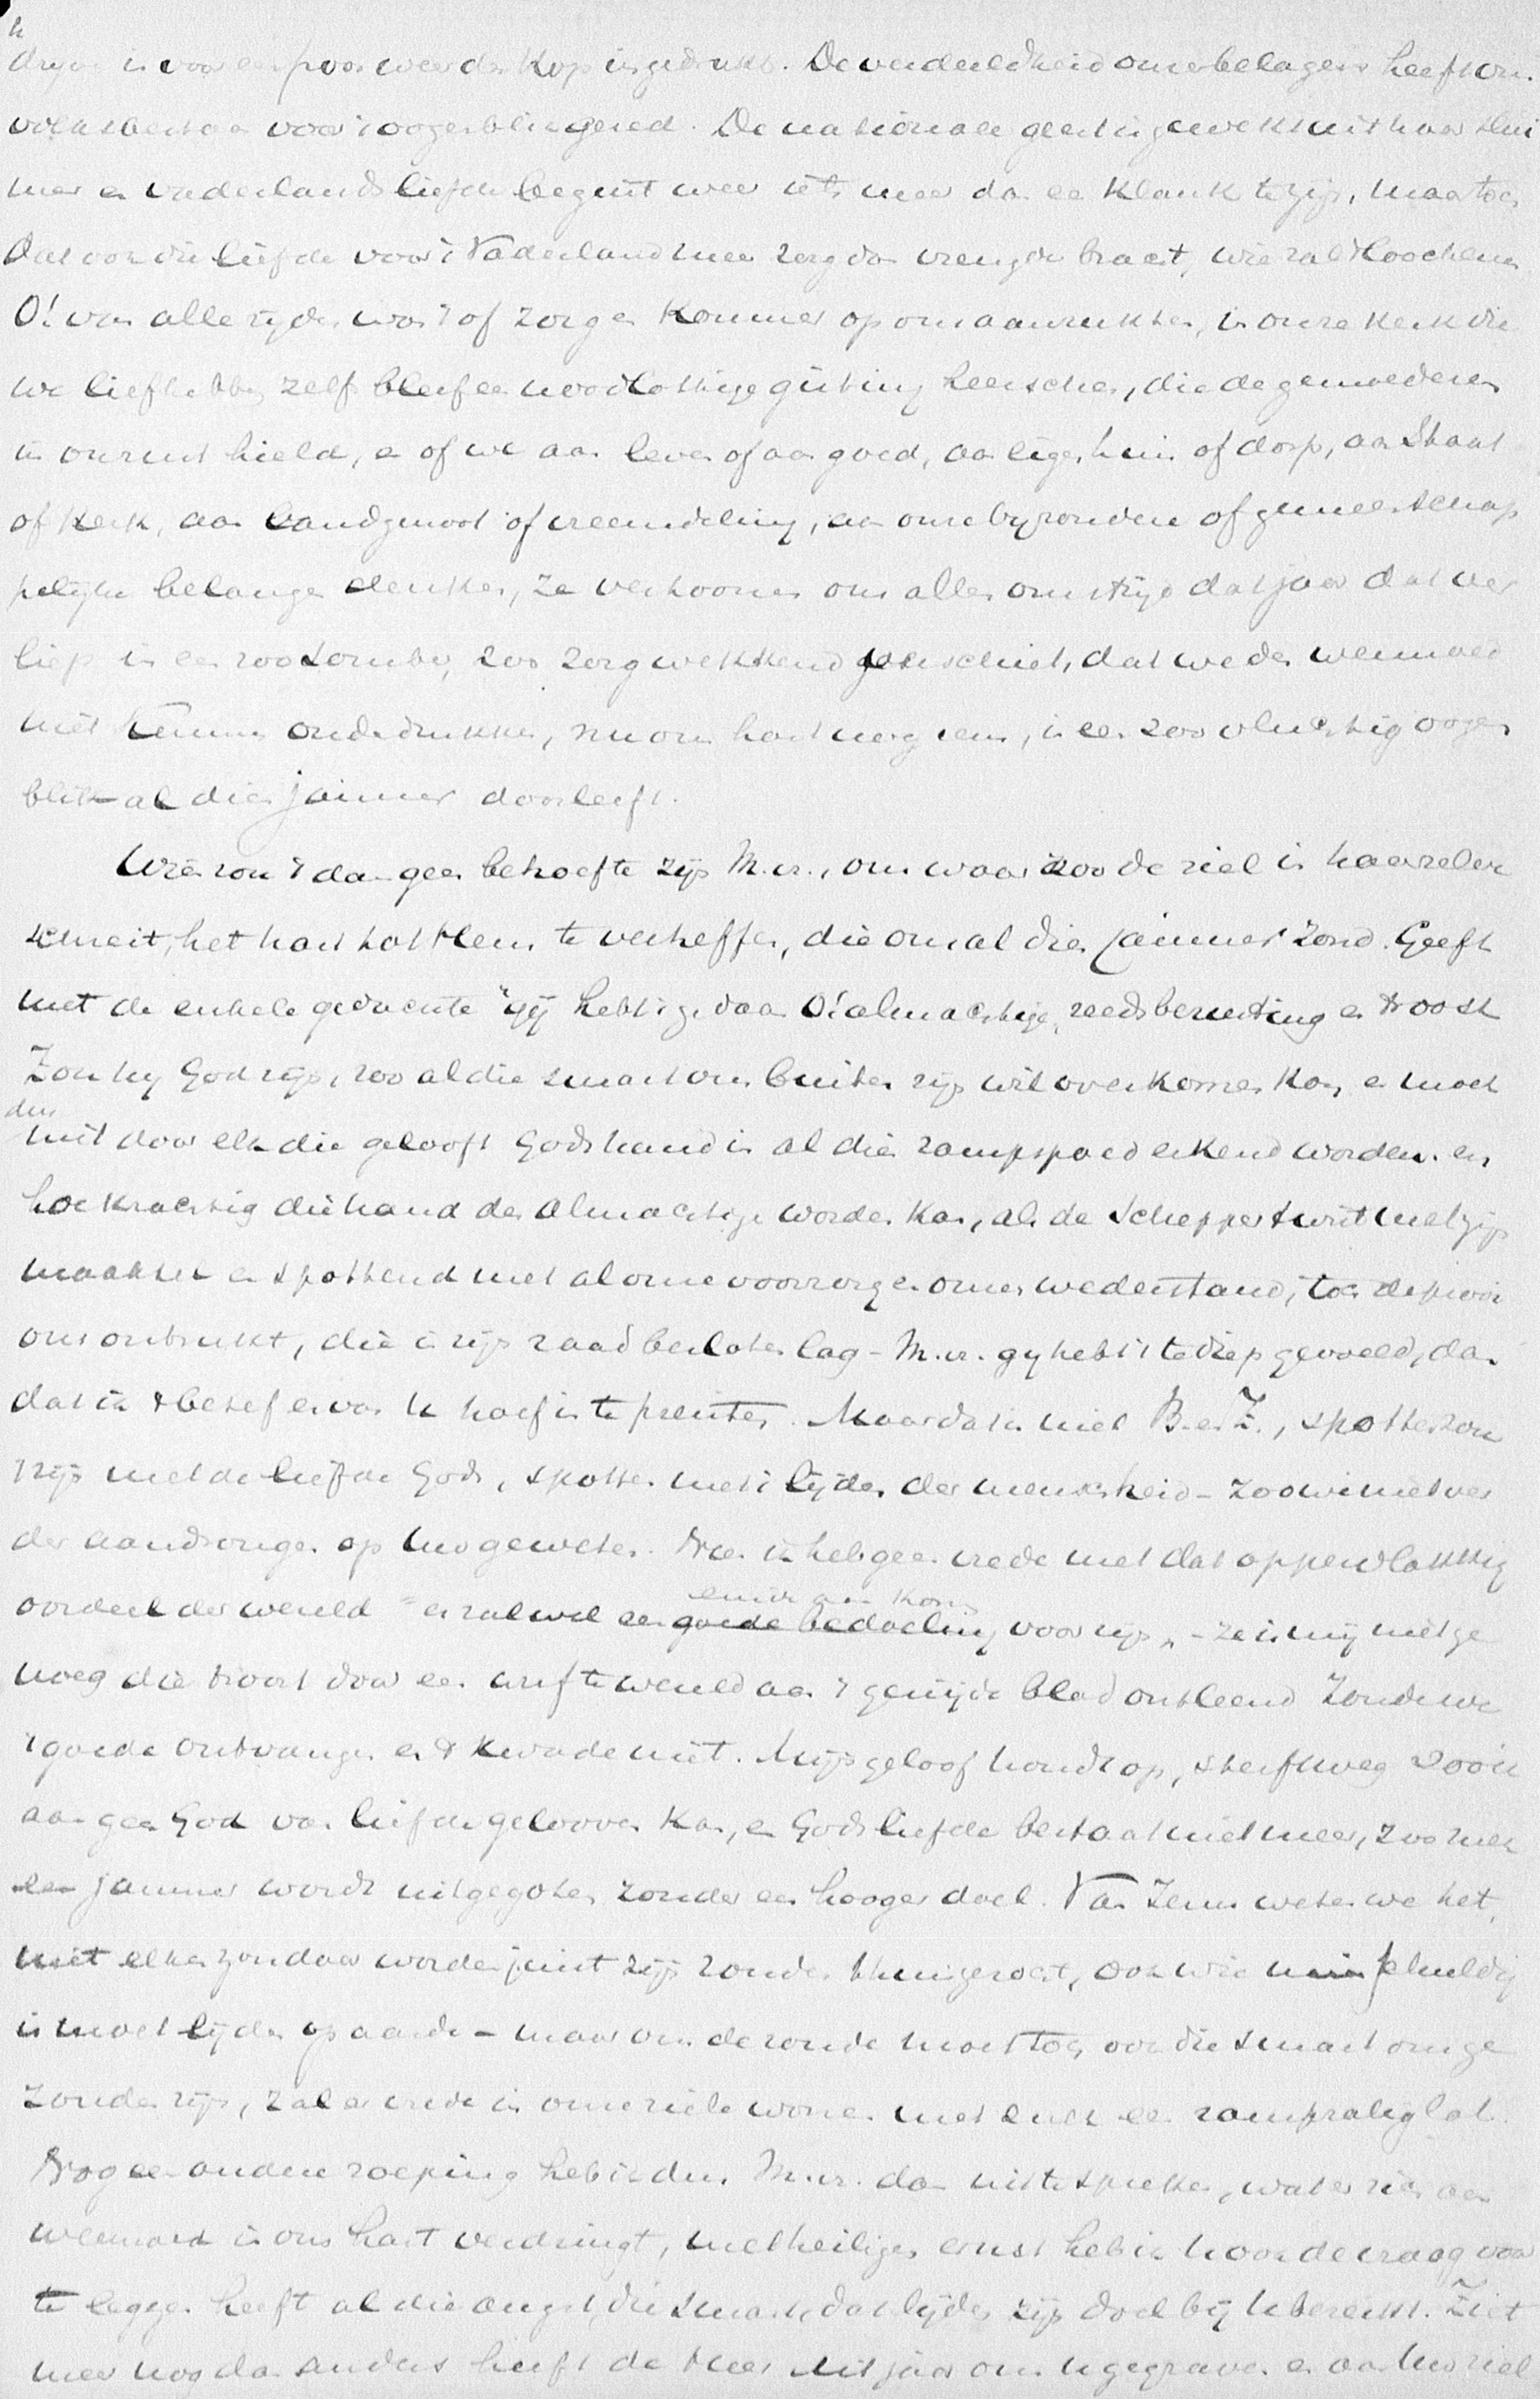 is voor een poos weer de kop ingedrukt. De verdeeldheid onzer belagers heeft ons
volksbestaan voor 't oogenblik gered. De nationale geest is gewekt uit haar slui
mer en vaderlandsliefde begint weer iets meer dan een klank te zijn, maar toch
dat ook die liefde voor 't Vaderland meer zorg dan vreugde bracht, wie zal 't loochenen
O! van alle zijden was 't of zorg en kommer op ons aanrukten, in onze kerk die
we liefhebben zelf bleef een noodlottige gisting heerschen, die de gemoederen
in onrust hield, en of we aan leven of aan goed, aan eigen huis of dorp, aan Staat
of Kerk, aan landgenoot of vreemdeling, aan onze byzondere of gemeenschap
pelijke belangen denken, ze vertoonen ons allen omstrijd dat jaar dat ver
liep in een zoo somber, zoo zorgwekkend licht, dat we den weemoed
niet kunnen onderdrukken, nu ons hart nog eens, in een zoo vluchtig oogen
blik al dien jammer doorleeft.
Wie zou 't dan geen behoefte zijn M.V., om waar zoo de ziel in haar zelve
schreit, het hart tot Hem te verheffen, die ons al dien jammer zond. Geeft
niet de enkele gedachte "gij hebt 't gedaan O! almachtige, reeds berusting en troost
Zou hy God zijn, zoo al die smart ons buiten zijn wil overkomen kon, en moet
dus
niet door elk die gelooft Gods hand in al dien rampspoed erkend worden. en
hoe krachtig die hand des Almachtige worden kan, als de Schepper twist met zijn
maaksel en spottend met al onze voorzorgen onzen wederstand, toch de prooi
ons ontrukt, die in zijn raad besloten lag - M.V. gy hebt 't te diep gevoeld, dan
dat ik 't besef er van U hoef in te prenten. Maar dat is niet B. en Z., spotten zou
't zijn met de liefde Gods, spotten met 't lijden der menschheid - zoo wie niet ver
der aandrongen op Uw geweten. Neen ik heb geen vrede met dat oppervlakkig
oordeel der wereld "er zal wel een goede bedoeling voor zijn" - ze is mij niet ge
noeg die troost door een wufte wereld aan 't gewijde blad ontleend Zouden we
't goede ontvangen en 't kwade niet. Mijn geloof houdt op, sterft weg zoo ik
aan geen God van liefde gelooven kan, en Gods liefde bestaat niet meer, zoo
een jammer wordt uitgegoten zonder een hooger doel. Van Jezus weten we het,
niet elken zondaar worden juist zijn zonden t'huis gezocht, ook wie schuldig
is moet lijden op aarde - maar om de zonde moet toch ook die smart ons ge
zonden zijn, zal er vrede in onze ziele wonen met een rampzalig lot.
Nog een andere roeping heb ik dus M.V. dan uit te spreken, wat er
weemoed in ons hart verdringt, met heiligen ernst heb ik U ook de vraag voor
te leggen heeft al die angst, die smart, dat lijden zijn doel bij U bereikt. Ziet
meer nog dan anders heeft de Heer dit jaar om U gegraven en aan Uw ziel